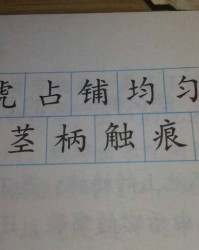 虎占铺均匀
茎柄触痕